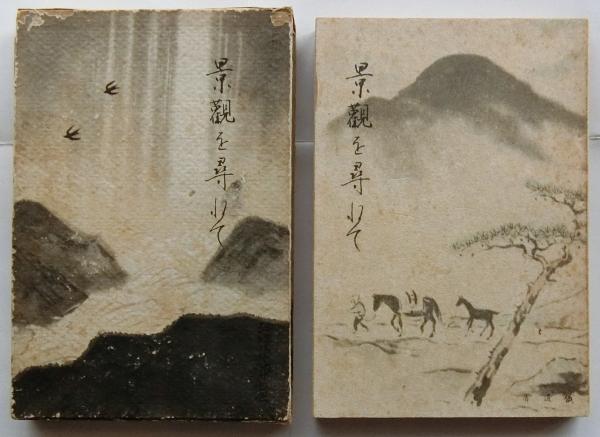 景觀を尋ねて
景觀を尋ねて